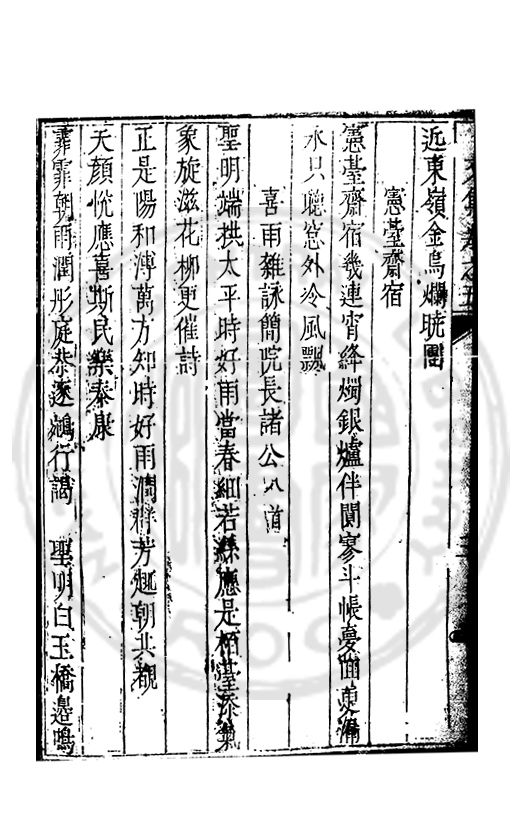 集卷之五
近東嶺金烏爛曉團
憲䑓齋宿
憲䑓齋宿幾連宵絳燭銀爐伴闃寥斗帳夢回更漏
水只聽窓外冷風飄
喜雨雜詠簡院長諸公八道
聖明端拱太平時好雨當春細若絲應是栢䑓添氣
象旋滋花柳更催詩
正是陽和溥萬方知時好雨潤群芳趍朝共覩
天顔悅應喜斯民樂泰康
霏霏朝雨潤彤庭恭逐鵷行謁 聖明白玉橋邉鳴